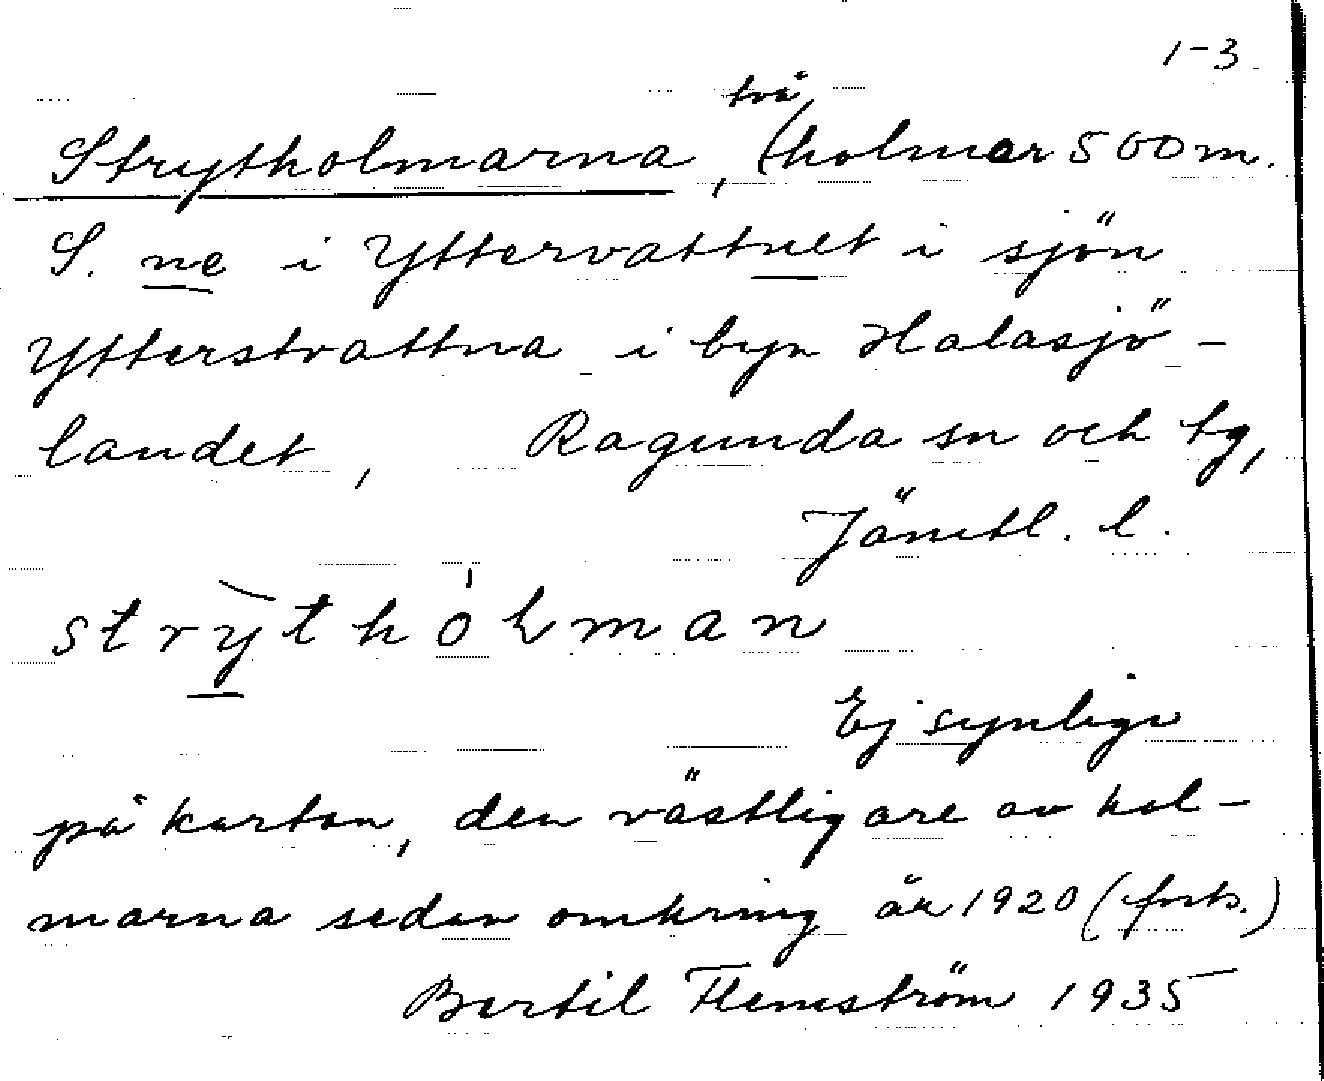 1-3
två
Strytholmarna, (holmar 500 m.
S. ne i Yttervattnet i sjön
Ytterstvattna i byn Halasjö-
landet, Ragunda sn och tg,
Jämtl. l.
strythólman
Ej synliga
på kartan, den västligare av hol-
marna sedan omkring år 1920 (forts.)
Bertil Flemström 1935